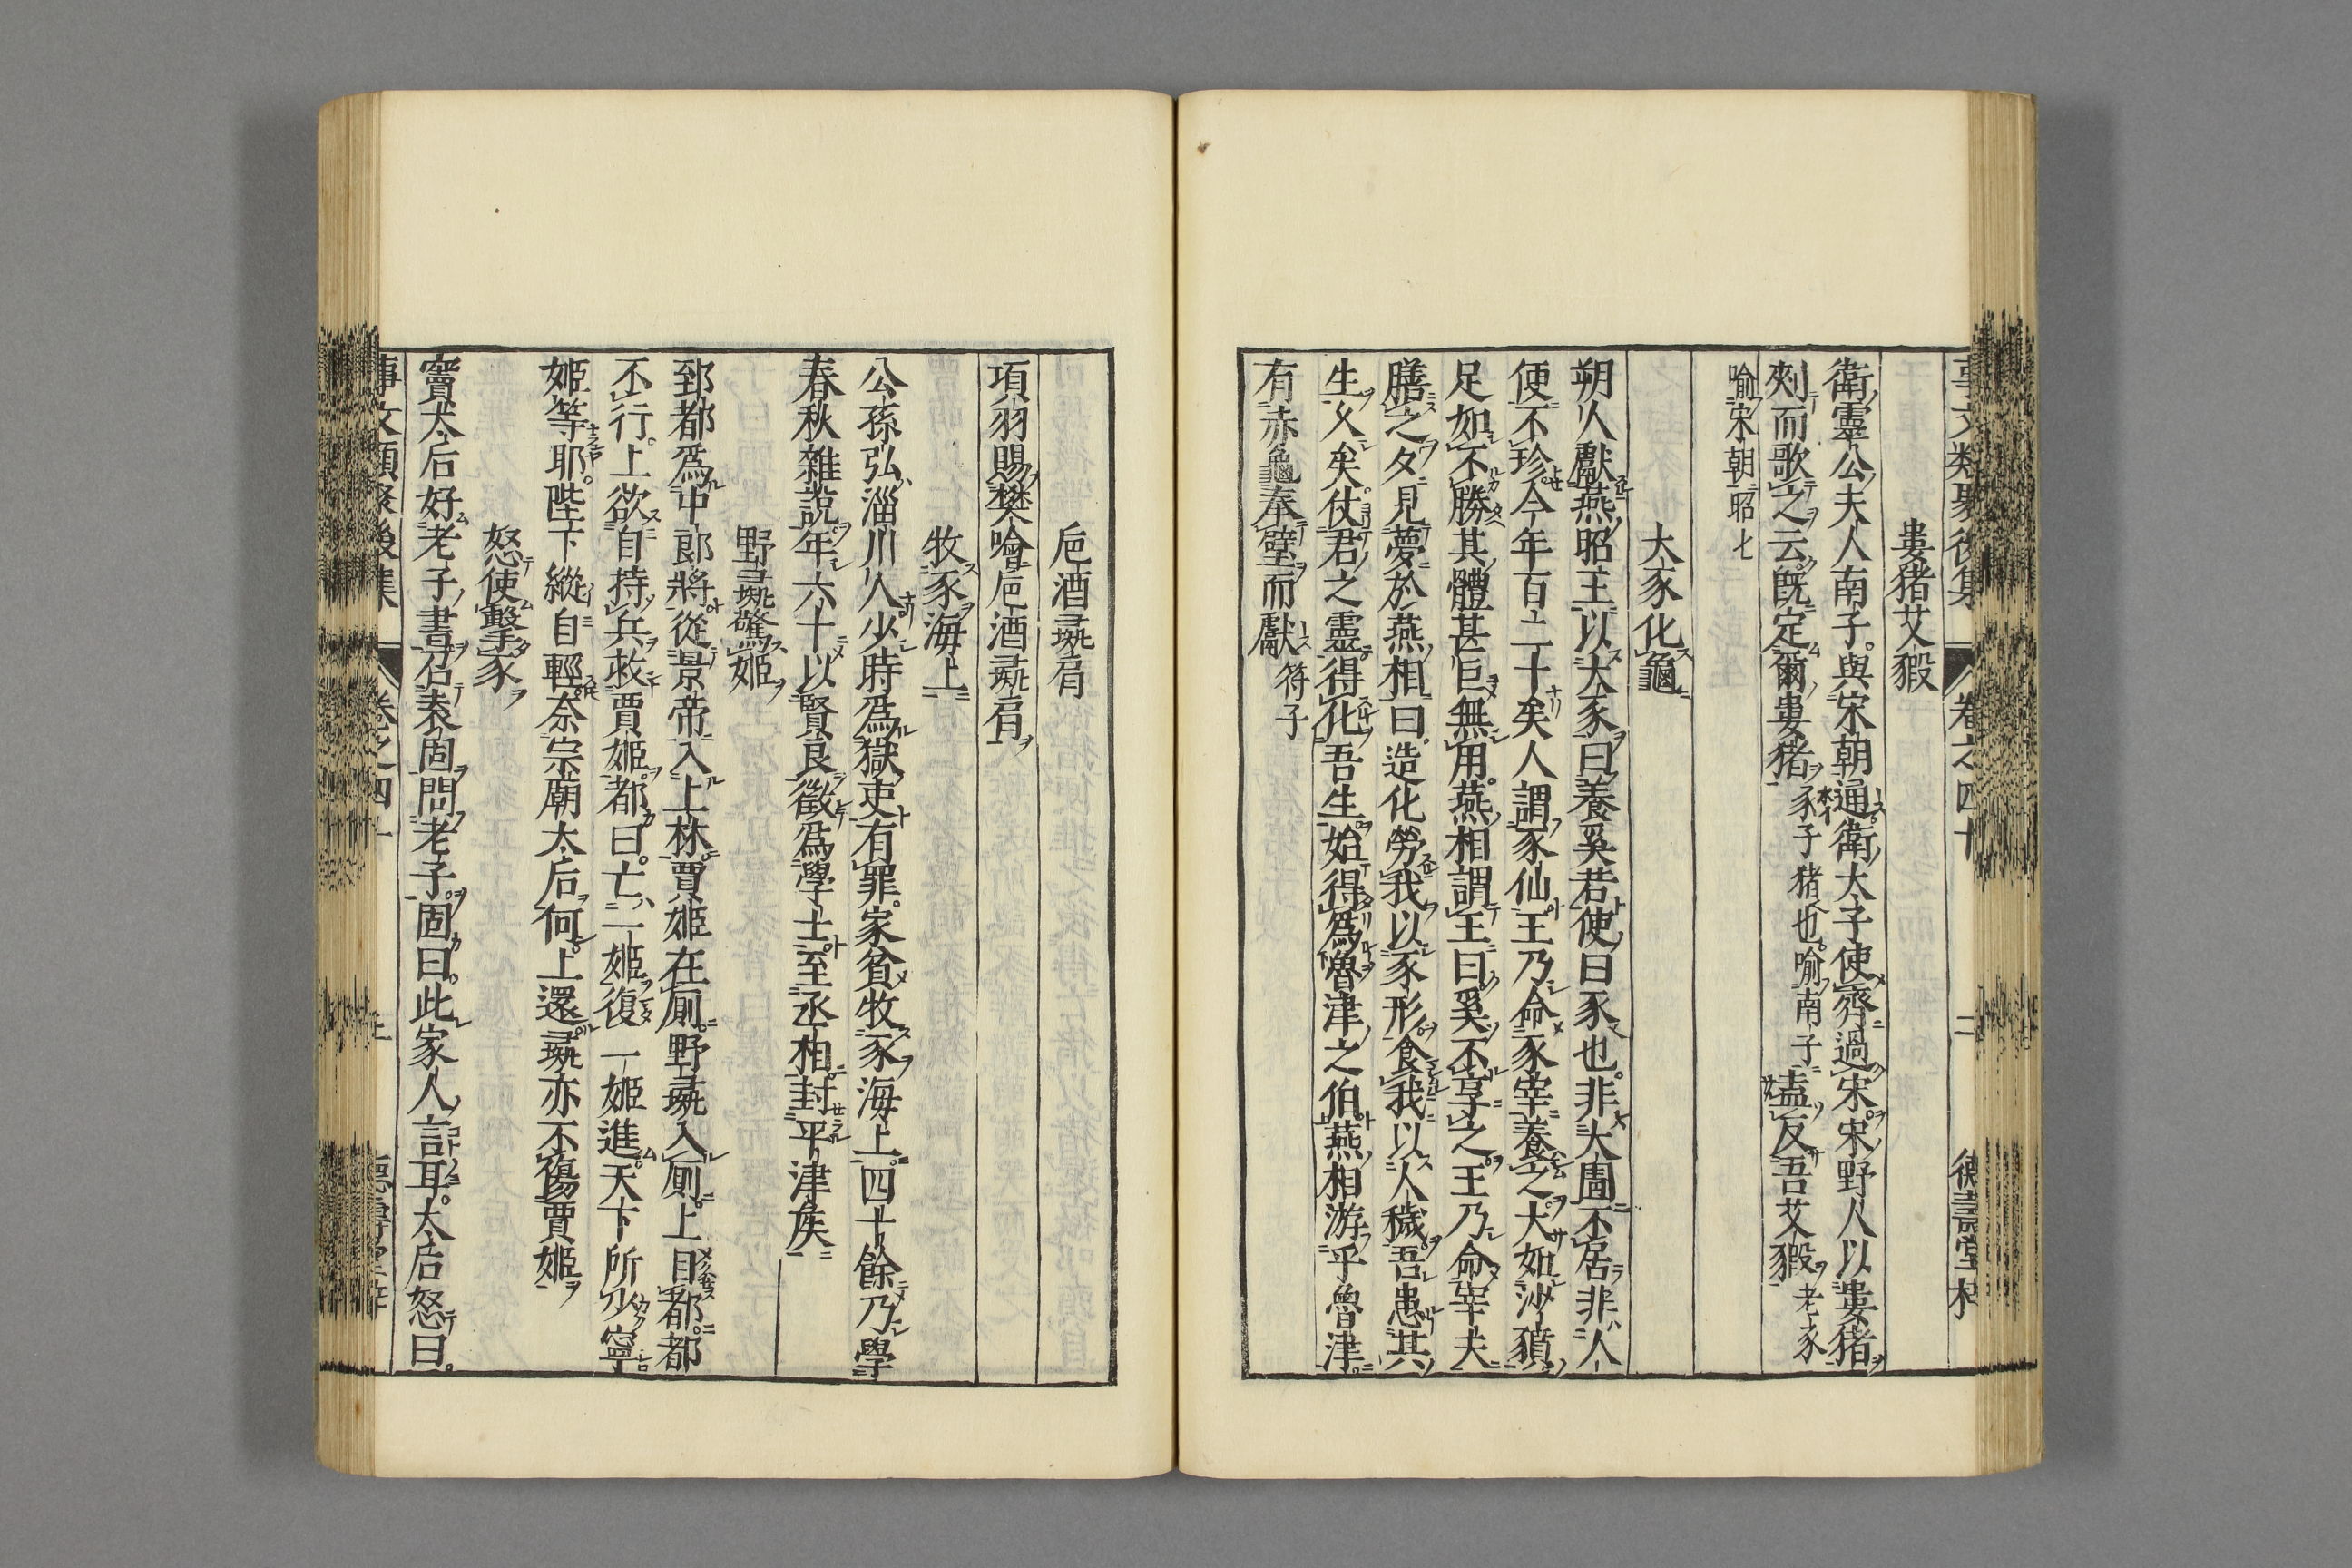 事文類聚後集 卷之四十 二 德壽堂梓
婁猪艾豭
衛靈公夫人南子與宋朝通衛太子使齊過宋宋野人以婁猪
刺而歌之云旣定爾婁猪 豕子猪也喻南子 盍反吾艾豭 老豕
喻宋朝 昭七
大豕化龜
朔人獻燕昭王以大豕曰養奚若使曰豕也非大圊不居非人
便不珍今年百二十矣人謂豕仙王乃命豕宰養之大如沙豶
足如不勝其體甚巨無用燕相謂王曰奚不享之王乃命宰夫
膳之夕見夢於燕相曰造化勞我以豕形食我以人穢吾患其
生乂矣仗君之靈得化吾生始得爲魯津之伯燕相游乎魯津
有赤龜奉璧而獻 符子
巵酒彘肩
項羽賜樊噲巵酒彘肩
牧豕海上
公孫弘淄川人少時爲獄吏有罪家貧牧豕海上四十餘乃學
春秋雜說年六十以賢良徵爲學士至丞相封平津侯
野彘驚姬
郅都爲中郎將從景帝入上林賈姬在厠野彘入厠上目都都
不行上欲自持兵救賈姬都曰亡一姬復一姬進天下所少寧
姬等耶陛下縱自輕奈宗廟太后何上還彘亦不傷賈姬
怒使擊豕
竇太后好老子書召袁固問老子固曰此家人言耳太后怒曰
事文類聚後集 卷之四十